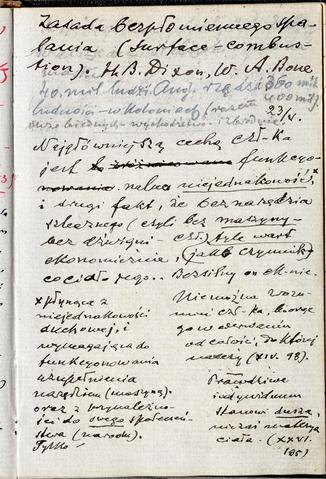 Zasada bezpłomiennego spa-
lania (surface-combus-
tion). H.B. Dixon, W. A. Bone
40 mil. ludzi Ang. rządzi 360 mil.
ludności w koloniach (razem 400 mil.)
23/V.
Najgłówniejszą cechą czł-ka
jest funkcyo-
nalna niejednakowość ×
i drugi fakt, że bez narzędzia
(czyli bez maszyny-
bez dźwigni- czł.) tyle wart
ekonomicznie, (jako czynnik)
co ciało jego. Bezsilny on ek-nie.
× płynąca z
niejednakowości
duchowej, i
wymagająca do
funkcyonowania
uzupełnienia
narzędziem (maszyną).
oraz z przynależno-
ści do swego społeczeń-
stwa (narodu).
Tylko
Nie można rozu-
mieć czł-ka, biorąc
go w oderwaniu
od całości, do której
należy (XIV. 98).
Prawdziwe
indywiduum
stanowi dusza,
niezaś materya
ciała. (XXVI.
85)